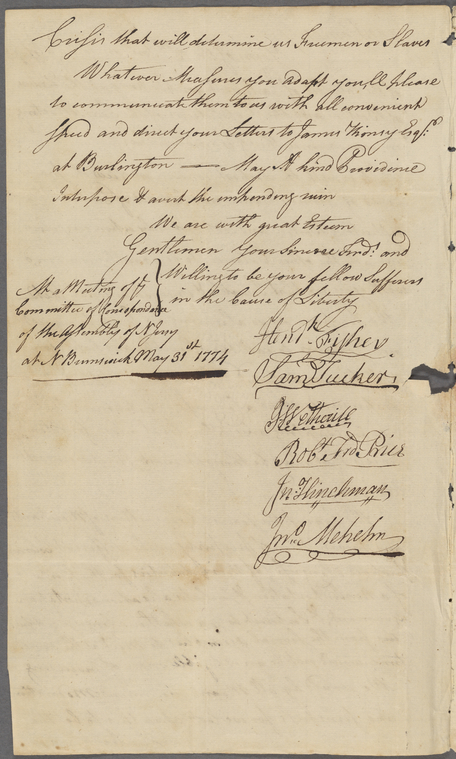 Crisis that will determine us Freemen or Slaves
Whatever Measures you adopt you'll please
to communicate them to us with all convenient
Speed and direct your Letters to James Kinsey Esqr.
at Burlington — May A kind Providence
Interpose & avert the impending ruin
We are with great Esteem
Gentlemen Your Sincere Frds. and
Willing to be your fellow Sufferers
in the Cause of Liberty
At a Meeting of ye
Committee of Correspondence
of the Assembly of N Jersy
at N Brunswick May 31st 1774
Hendk. Fisher
Saml. Tucker
J Wetherill
Robt. Frd. Price
Jno. Hinchman
Jno. Mehelm